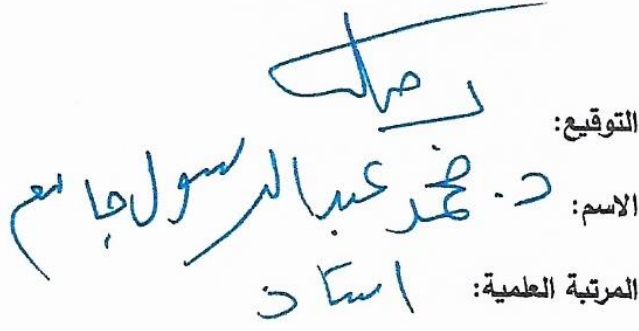 التوقيع:
الاسم: د. محمد عبد الرسول جاسم
المرتبة العلمية: استاذ